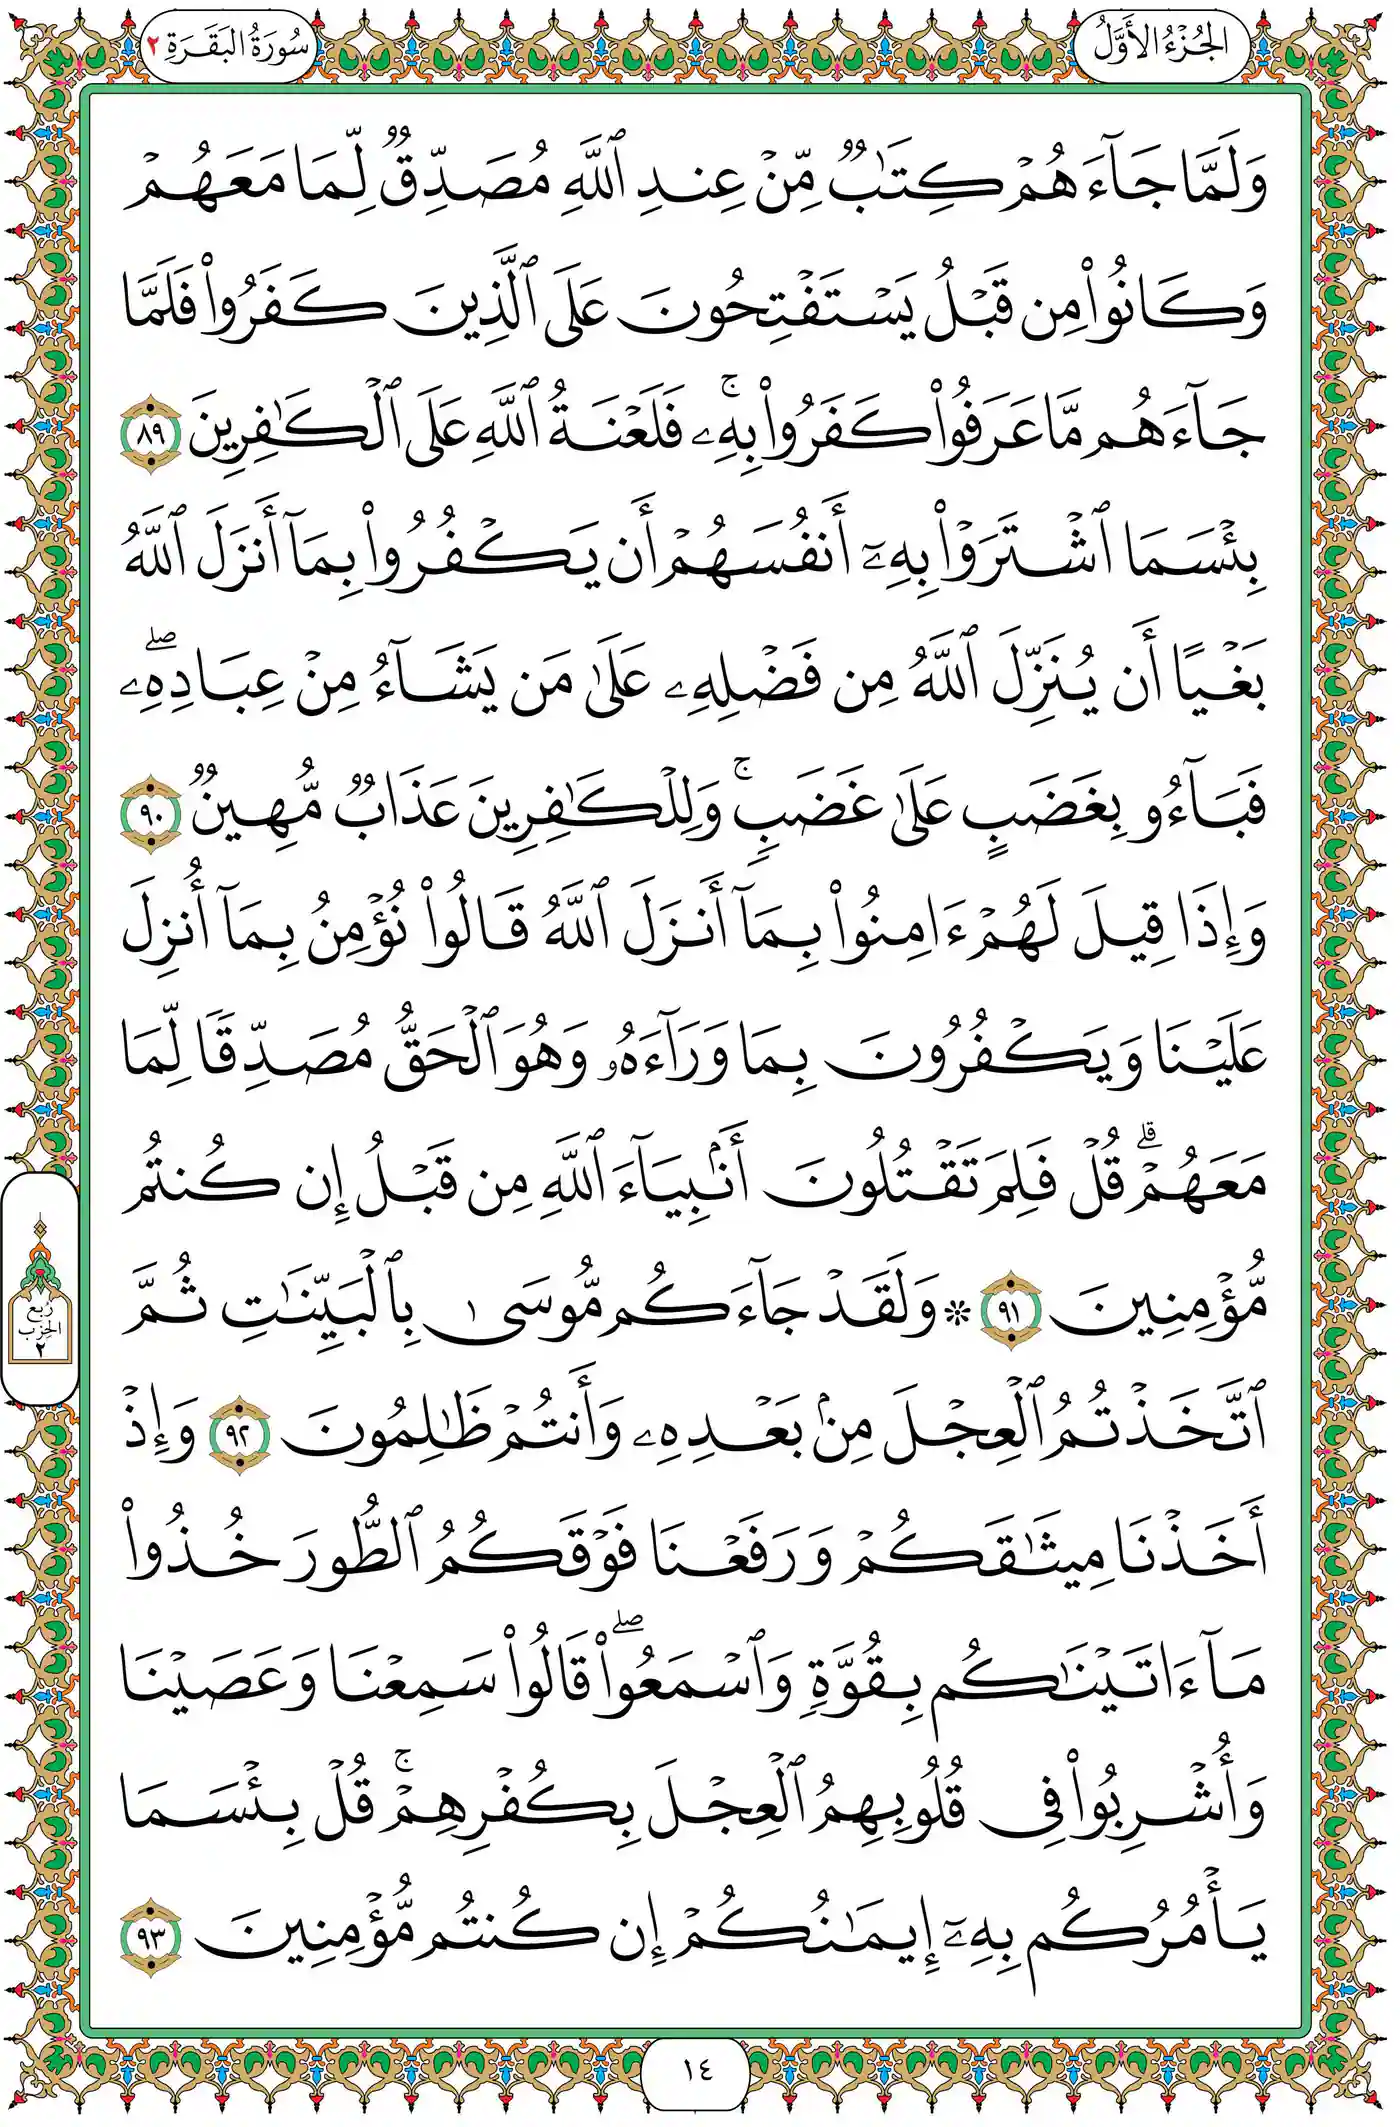 الجُزْءُ الأَوَّلُ
سُورَةُ البَقَرَةِ ٢
وَلَمَّا جَآءَهُمْ كِتَٰبٌ مِّنْ عِندِ ٱللَّهِ مُصَدِّقٌ لِّمَا مَعَهُمْ
وَكَانُوا۟ مِن قَبْلُ يَسْتَفْتِحُونَ عَلَى ٱلَّذِينَ كَفَرُوا۟ فَلَمَّا
جَآءَهُم مَّا عَرَفُوا۟ كَفَرُوا۟ بِهِۦ ۚ فَلَعْنَةُ ٱللَّهِ عَلَى ٱلْكَٰفِرِينَ ٨٩
بِئْسَمَا ٱشْتَرَوْا۟ بِهِۦٓ أَنفُسَهُمْ أَن يَكْفُرُوا۟ بِمَآ أَنزَلَ ٱللَّهُ
بَغْيًا أَن يُنَزِّلَ ٱللَّهُ مِن فَضْلِهِۦ عَلَىٰ مَن يَشَآءُ مِنْ عِبَادِهِۦ ۖ
فَبَآءُو بِغَضَبٍ عَلَىٰ غَضَبٍ ۚ وَلِلْكَٰفِرِينَ عَذَابٌ مُّهِينٌ ٩٠
وَإِذَا قِيلَ لَهُمْ ءَامِنُوا۟ بِمَآ أَنزَلَ ٱللَّهُ قَالُوا۟ نُؤْمِنُ بِمَآ أُنزِلَ
عَلَيْنَا وَيَكْفُرُونَ بِمَا وَرَآءَهُۥ وَهُوَ ٱلْحَقُّ مُصَدِّقًا لِّمَا
مَعَهُمْ ۗ قُلْ فَلِمَ تَقْتُلُونَ أَنۢبِيَآءَ ٱللَّهِ مِن قَبْلُ إِن كُنتُم
مُّؤْمِنِينَ ٩١ ۞ وَلَقَدْ جَآءَكُم مُّوسَىٰ بِٱلْبَيِّنَٰتِ ثُمَّ
ٱتَّخَذْتُمُ ٱلْعِجْلَ مِنۢ بَعْدِهِۦ وَأَنتُمْ ظَٰلِمُونَ ٩٢ وَإِذْ
أَخَذْنَا مِيثَٰقَكُمْ وَرَفَعْنَا فَوْقَكُمُ ٱلطُّورَ خُذُوا۟
مَآ ءَاتَيْنَٰكُم بِقُوَّةٍ وَٱسْمَعُوا۟ ۖ قَالُوا۟ سَمِعْنَا وَعَصَيْنَا
وَأُشْرِبُوا۟ فِى قُلُوبِهِمُ ٱلْعِجْلَ بِكُفْرِهِمْ ۚ قُلْ بِئْسَمَا
يَأْمُرُكُم بِهِۦٓ إِيمَٰنُكُمْ إِن كُنتُم مُّؤْمِنِينَ ٩٣
رُبع
الحِزب
٢
١٤